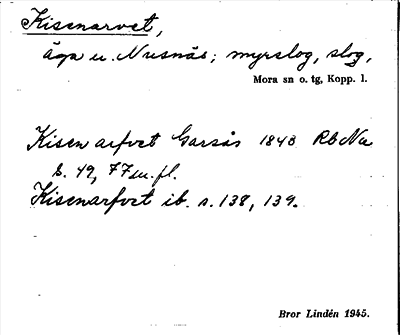 Kisenarvet,
äga u. Nusnäs; myrslog, slog,
Mora sn o. tg, Kopp. l.
Kisen arfvet Garsås 1843 RbNa
s. 49, 77 m. fl.
Kisenarfvet ib. s. 138, 139.
Bror Lindén 1945.